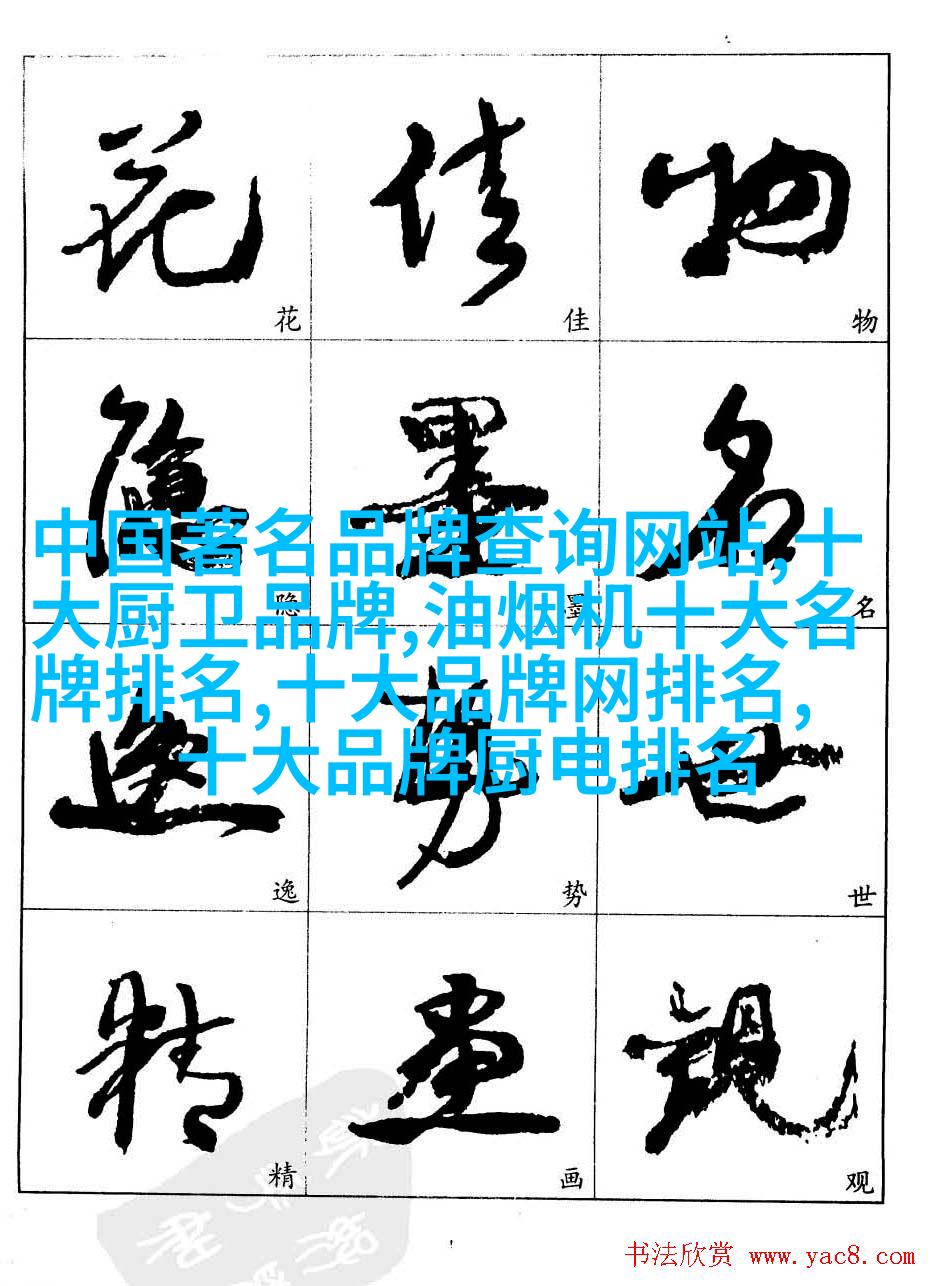 花 佳 物
花 佳 物
隱 墨 名
中国著名品牌查询网站,十
大厨卫品牌,油烟机十大名
隐 墨 名
牌排名,十大品牌网排名,
十大品牌厨电排名
逸 势 世
逸 势 世
精 画 观
精 画 观
书法欣赏 www.yac8.com